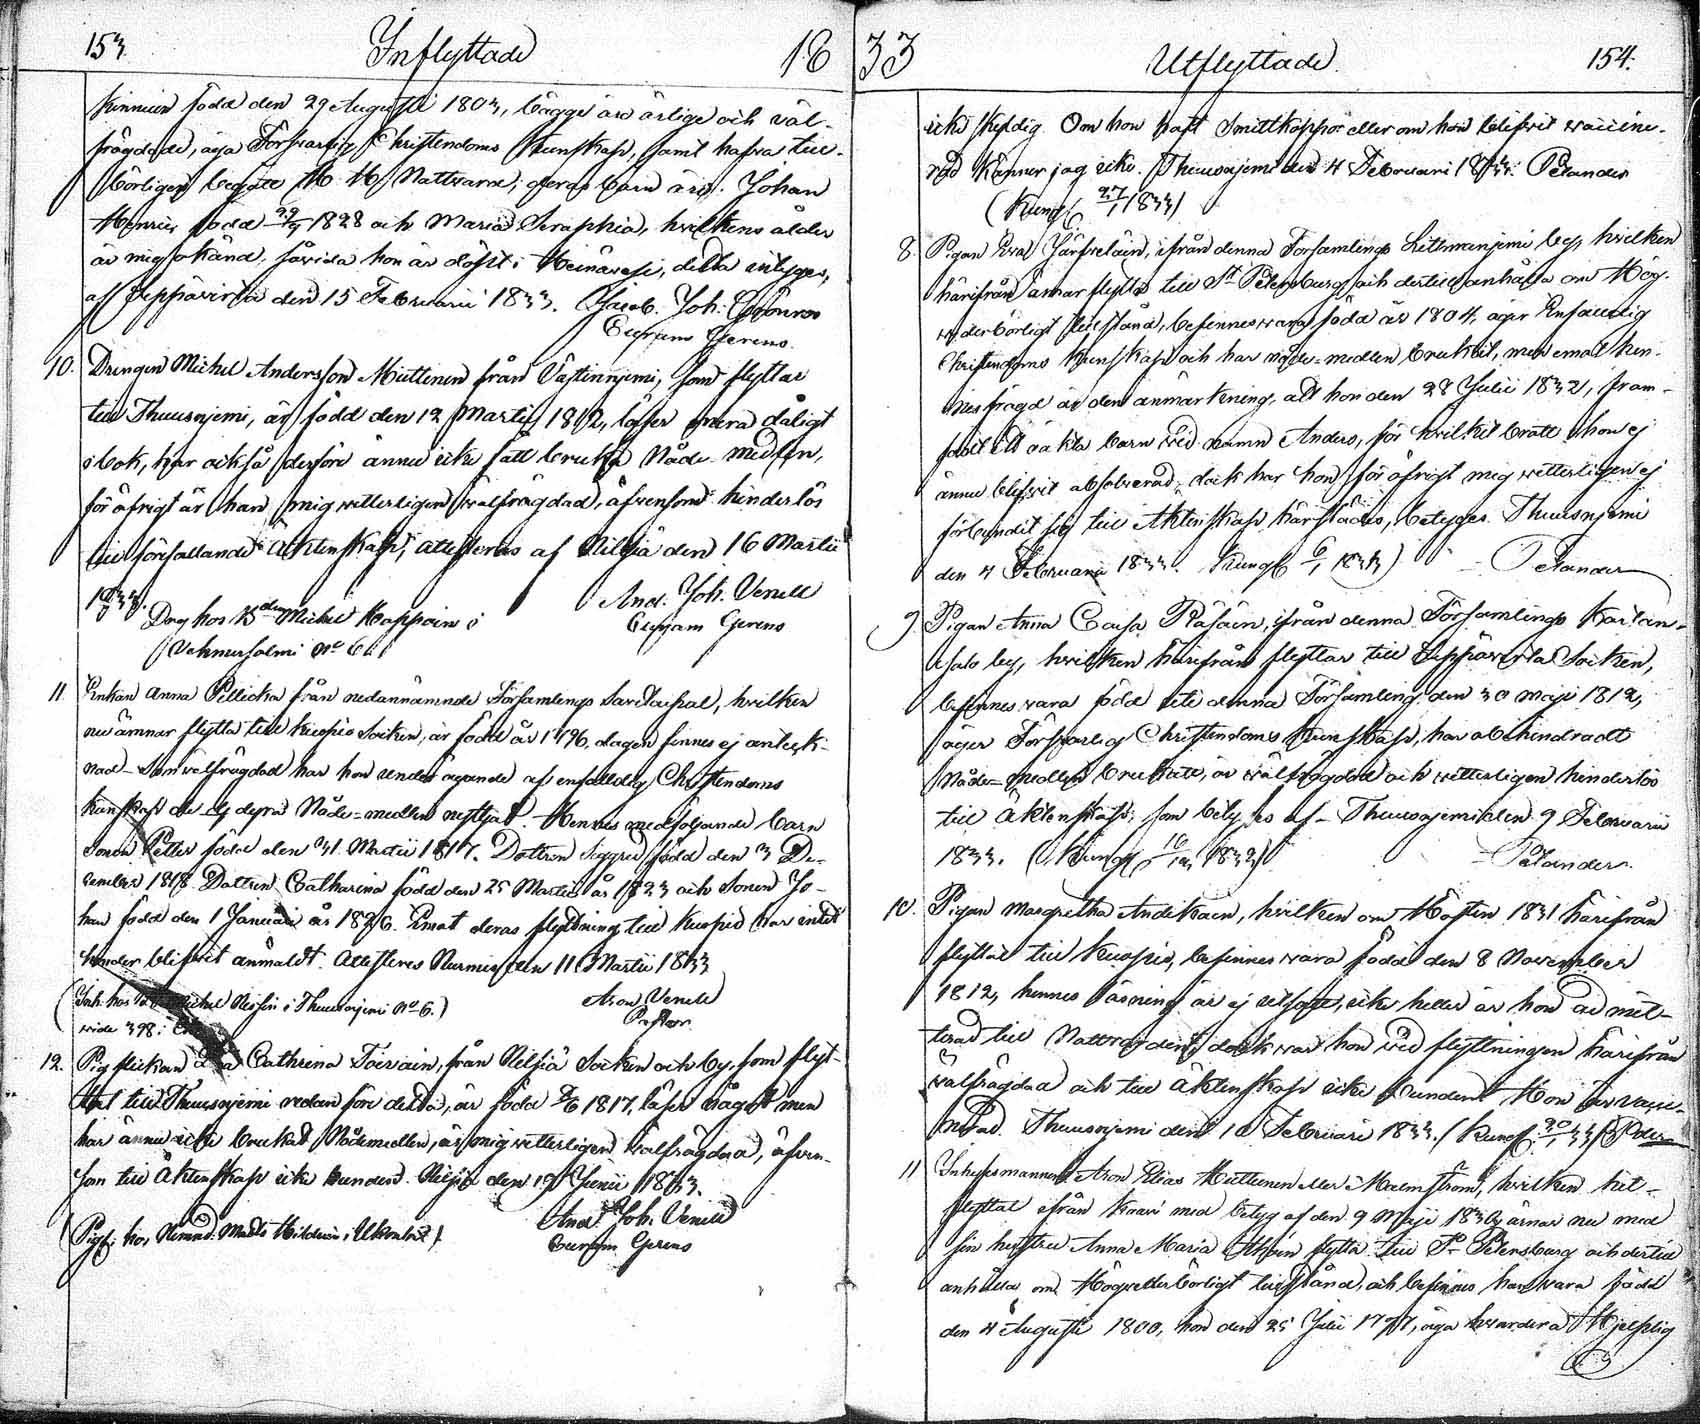 153. Inflyttade 18
kinnien född den 29 Augusti 1803, bägge äro ärlige och väl-
frägdade, äga Försvarlig Christendoms Kunskap, samt hafva till-
börligen begått H. H. Nattvard; deras barn äro. Johan
Henric född 1828 och Maria Seraphia, hvilkens ålder
är mig okänd, såvida hon är döpt i Heinävesi, detta intygas,
af Leppävirta den 15 Februarii 1833. Jacob. Joh.
10. Drengen Michel Andersson Miettinen från Västinnjemi, som flyttar
till Thuusnjemi, är född den 12 Martii 1812, läser mera dåligt
i bok, har också derföre ännu icke fått bruka Nåde-medlen,
för öfrigt är han mig vitterligen välfrägdad, äfvensom hinderlös
till förefallande Äktenskap, attesteras af Nilsiä den 16 Martii
1833. And. Joh. Venell
Dreng hos Michel Kappain i
Vehmersalmi No 6.
11. Enkan Anna Pellicka från nedannämnde Församlings Savilaspal, hvilken
nu ämnar flytta till Kuopio Socken, är född år 1796, dagen finnes ej anteck-
nad. Som välfrägdad har hon under ägande af enfaldig Christendoms
kunskap de dyra Nåde-medlen nyttjat. Hennes medföljande barn
Sonen Petter född den 31 Martii 1817. Dottren Siggred född den 3 De-
cember 1818. Dottren Catharina född den 25 Martii år 1823 och Sonen Jo-
han född den 1 Januari år 1826. Emot deras flyttning till Kuopio har intet
hinder blifvit anmäldt. Attesteres Nurmis den 11 Martii 1833
Aron Venell
Pastor
(Inh. hos Michel i Thuusnjemi No 6.)
vide 398.
12. Pigflickan Cathrina Toivain, från Nilsiä Socken och by, som flyt-
tat till Thuusnjemi redan före detta, är född 1817, läser något men
har ännu icke brukat Nådemedlen, är mig vitterligen välfrägdad, äfven-
som till Äktenskap icke bunden. Nilsiä den 19 Junii 1833.
And. Joh. Venell
(Pigf. hos Nämnd. Matts
33 Utflyttade. 154.
icke skyldig. Om hon haft Smittkoppor eller om hon blifvit vaccine-
rad känner jag icke. Thuusnjemi den 4 Februari 1833. Pelander
(Kungl. 27/1 1833)
8. Pigan Eva Järfveläin, ifrån denna Församlings Litmanjemi by, hvilken
härifrån ämnar flytta till St Petersburg och dertill anhålla om Hög-
vederbörligt tillstånd, befinnes vara född år 1804, äger Enfaldig
Christendoms kunskap och har nåde-medlen brukat, men emot hen-
nes frägd är den anmärkning, att hon den 28 Julii 1832, fram-
födt ett oäkta barn vid namn Anders, för hvilket brott hon ej
ännu blifvit absolverad; dock har hon för öfrigt mig vitterligen ej
förbundit sig till Äktenskap härstädes, betygas. Thuusnjemi
den 4 Februarii 1833. Kungl. 6/1 1833) Pelander
9 Pigan Anna Caisa Räsäin, ifrån denna Församlings Kartan-
salo by, hvilken härifrån flyttar till Leppävirta Socken,
befinnes vara född uti denna Församling den 30 Maji 1812,
äger Försvarlig Christendoms kunskap, har obehindradt
Nåde-medlen brukat, är välfrägdad och vitterligen hinderlös
till Äktenskap; som betygas af Thuusnjemi den 9 Februarii
1833. (Kungl. 16/12 1832) Pelander.
10. Pigan Margretha Andikain, hvilken om Hösten 1831 härifrån
flyttat till Kuopio, befinnes vara född den 8 November
1812, hennes läsning är ej utsatt, icke heller är hon ad mit-
terad till Nattvarden; dock var hon vid flyttningen härifrån
välfrägdad och till Äktenskap icke bunden. Hon är vacci-
nerad. Thuusnjemi den 10 Februari 1833. (Kungl. 20/1 33)
11 Inhysesmannen Aron Elias Miettinen eller Malmström, hvilken hit-
flyttat ifrån Kaavi med betyg af den 9 Maji ärnar nu med
sin hustru Anna Maria flytta till St Petersburg och dertill
anhålla om Högvederbörligt tillstånd, och befinnes han vara född
den 4 Augusti 1800, hon den 25 Julii 1797, äga hvardera Hjelplig